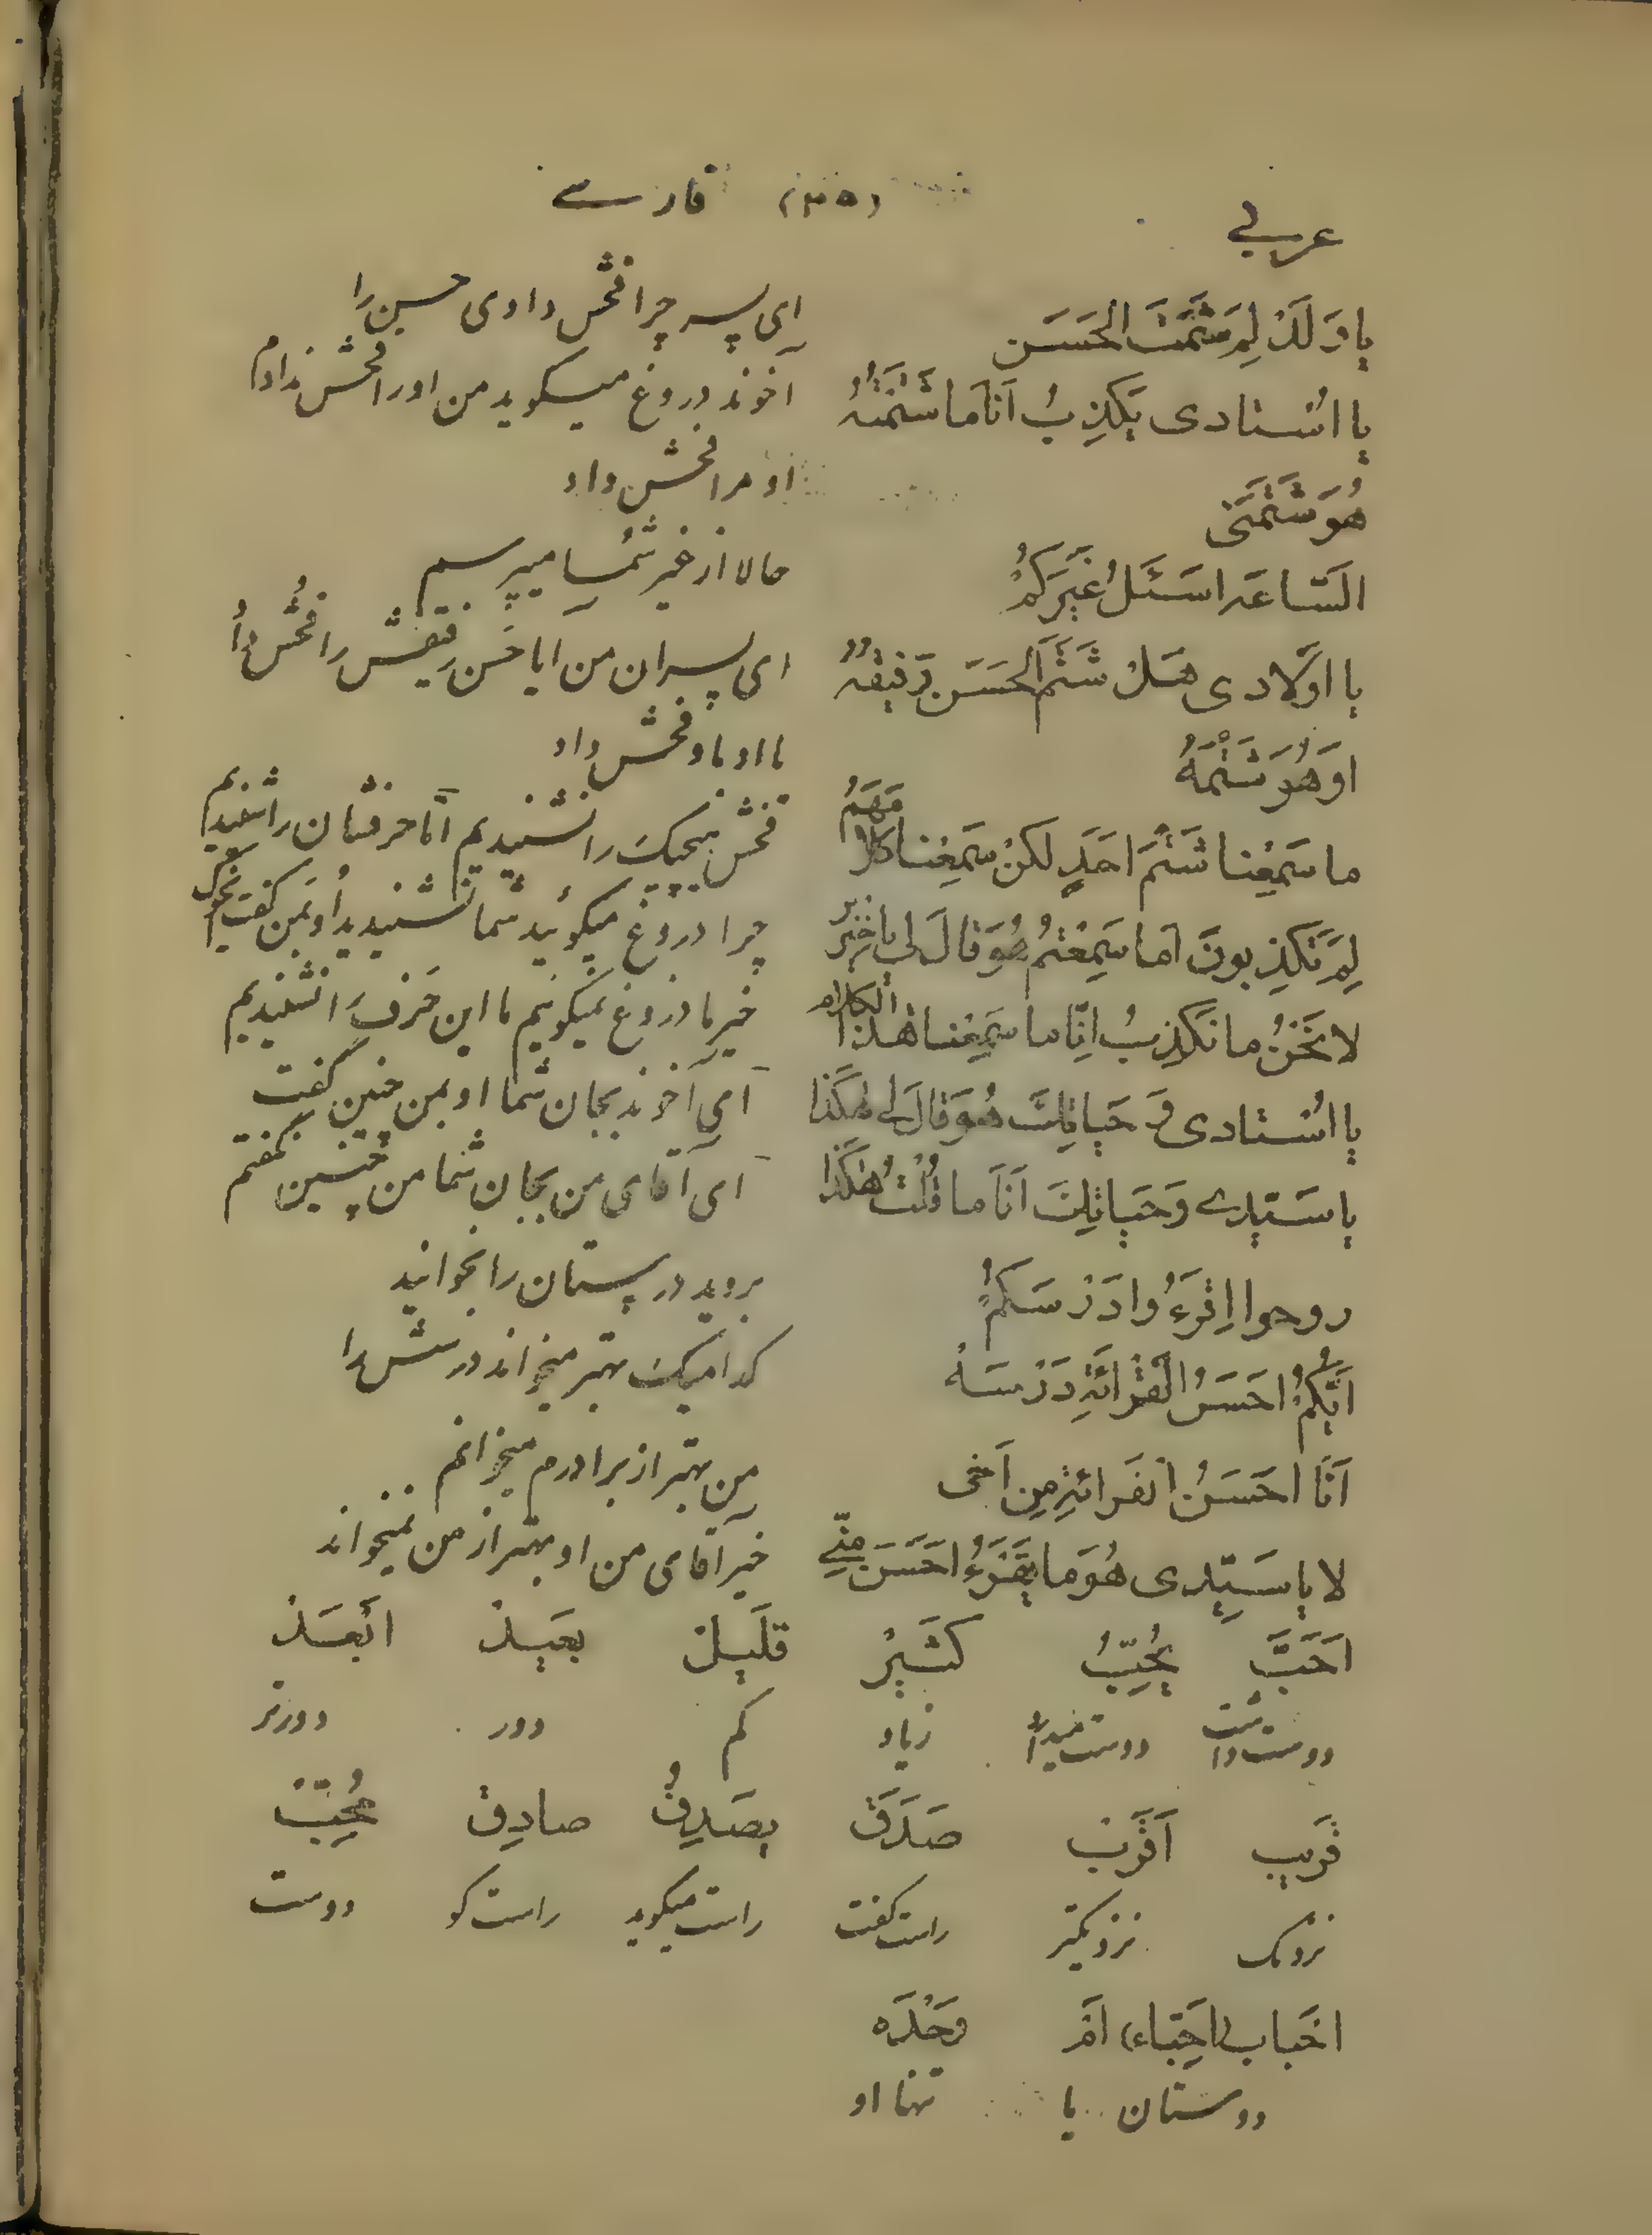 عربی (۳۵) فارسے
یا وَلَدُ لِمَ شَتَمْتَ الْحَسَن ای پسر چرا فحش دادی حسن را
یا اُسْتادی یَکْذِبُ اَنَا مَا شَتَمْتُهُ آخوند دروغ میگوید من اورا فحش ندادم
هُوَ شَتَمَنی او مرا فحش داد
السّاعَه اَسْئَلُ غَیْرَکُمْ حالا از غیر شما میپرسم
یا اَوْلادی هَلْ شَتَمَ الْحَسَن رَفیقَهُ ای پسران من ایا حَسَن رفیقش را فحش داد
اَوْ هُوَ شَتَمَهُ یا او باو فحش داد
ما سَمِعْنا شَتْمَ اَحَدٍ لکِنْ سَمِعْنا کَلامَهُمْ فحش هیچیک را نشنیدیم امّا حرفشان را شنیدیم
لِمَ تَکْذِبونَ اَما سَمِعْتُمْ هُوَ قالَ لی یا خِنْزیر چرا دروغ میگوئید شما نشنیدید او بمن گفت
لا نَحْنُ ما نَکْذِبُ اِنّا ما سَمِعْنا هٰذَا الْکَلام خیر ما دروغ نمیگوئیم ما این حَرف را نشنیدیم
یا اُسْتادی وَ حَیاتِکَ هُوَ قالَ لی هٰکَذا ای آخوند بجان شما او بمن چنین گفت
یا سَیّدے وَ حَیاتِکَ اَنَا ما قُلْتُ هٰکَذا ای آقای من بجان شما من چنین نگفتم
روحوا اِقْرَءُوا دَرْسَکُمْ بروید درستان را بخوانید
اَیُّکُمْ اَحْسَنُ الْقَرائَةِ دَرْسَهُ کدامیک بهتر میخواند درسش را
اَنَا اَحْسَنُ الْقَرائَةِ مِن اَخی من بهتر از برادرم میخوانم
لا یا سَیّدی هُوَ ما یَقْرَءُ اَحْسَنَ مِنّے خیر آقای من او بهتر از من نمیخواند
اَحَبَّ یُحِبُّ کَثیرْ قَلیلْ بَعیدْ اَبْعَدْ
دوست داشت دوست میدارد زیاد کم دور دورتر
قَریب اَقْرَبْ صَدَقَ یَصْدِقُ صادِق مُحِبّْ
نزدیک نزدیکتر راست گفت راست میگوید راست گو دوست
اَحْباب (اَحِبّاء) اَمْ وَحْدَه
دوستان یا تنها او